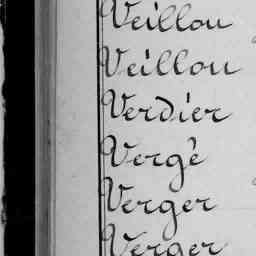 Veillou
Veillou
Verdier
Vergè
Verger
Verger